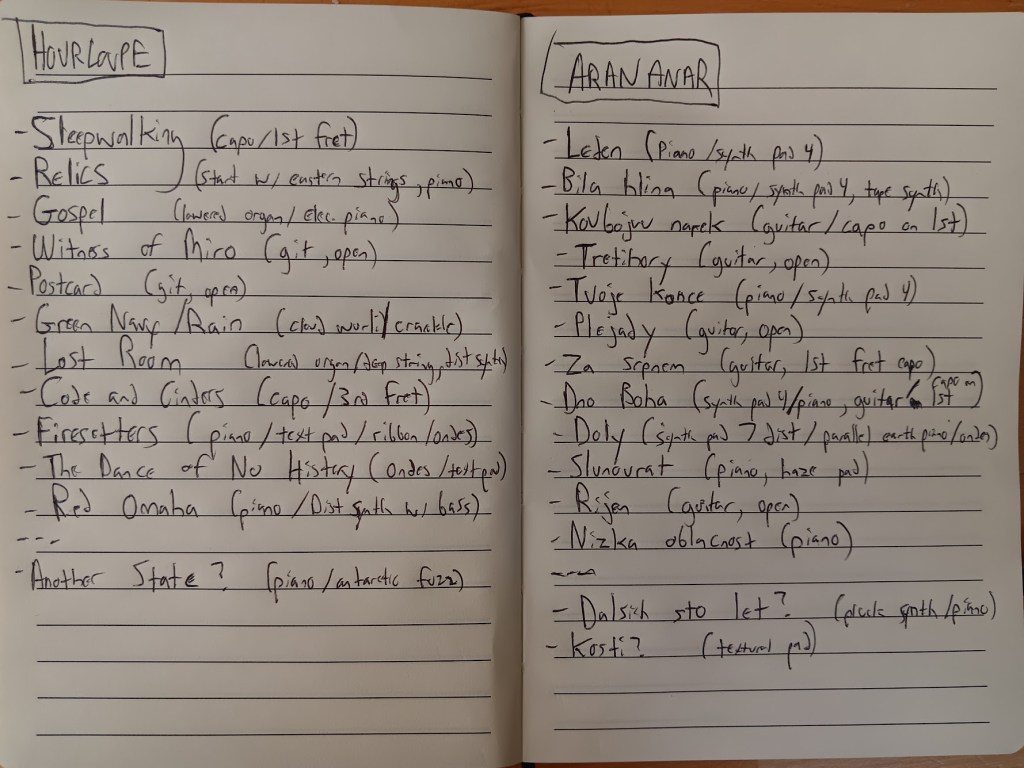 HOURLOUPE
- Sleepwalking (capo/1st fret)
- Relics (start w/ eastern strings, piano)
- Gospel (lowered organ/elec. piano)
- Witness of Miro (git, open)
- Postcard (git, open)
- Green Navy/Rain (cloud wurli/crackle)
- Lost Room (lowered organ/deep string, dist synth)
- Code and Cinders (capo/3rd fret)
- Firesetters (piano/text pad/ribbon/ondes)
- The Dance of No History (ondes/text pad)
- Red Omaha (piano/Dist synth w/ bass)
---
- Another State? (piano/antarctic fuzz)
ARANANAR
- Leden (Piano/synth pad 4)
- Bila hlina (piano/synth pad 4, tape synth)
- Kovbojuv napek (guitar/capo on 1st)
- Tretihory (guitar, open)
- Tvoje Konce (piano/synth pad 4)
- Plejady (guitar, open)
- Za srpnem (guitar, 1st fret capo)
- Dno Boha (synth pad 4/piano, guitar capo on 1st)
- Doly (synth pad > dist/parallel earth piano/ondes)
- Slunovrat (piano, haze pad)
- Rijen (guitar, open)
- Nizka oblacnost (piano)
---
- Dalsich sto let? (pluck synth/piano)
- Kosti? (textural pad)